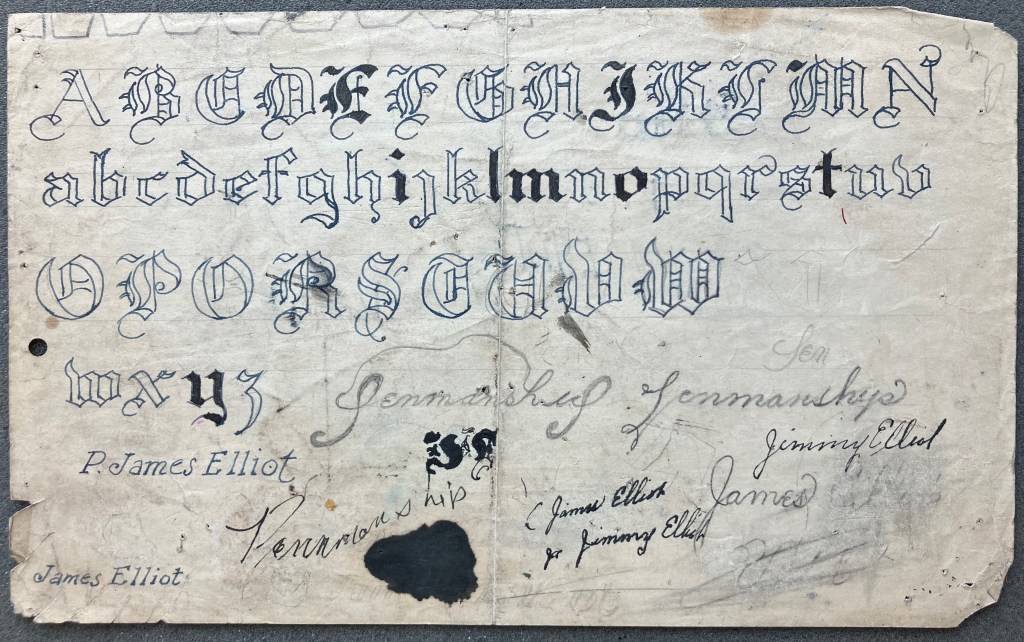 A B C D E F G H I K L M N
a b c d e f g h i j k l m n o p q r s t u v
O P Q R S T U V W
w x y z
Pen
Penmanship Penmanship
Jimmy Elliot
P. James Elliot
James
Penmanship
(James Elliot
Jr Jimmy Elliot
James Elliot